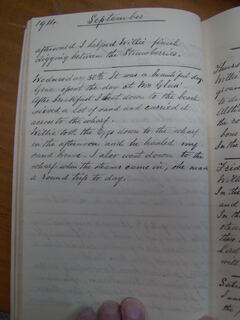 1914. September
afterward I helped Willie finish
digging between the Strawberries.
Wednesday 30th It was a beautiful day.
Grae spent the day at Mr Glens
After breakfast I went down to the beach
sieved a lot of sand and carried it
across to the wharf.
Willie took the Eggs down to the wharf
in the afternoon and he hauled my
sand home. I also went down to the
wharf when the steamer came in, she made
a round trip to day.
Thurs
Willie
to de
In the
Frid
Will
In the
and
In
will
Satu